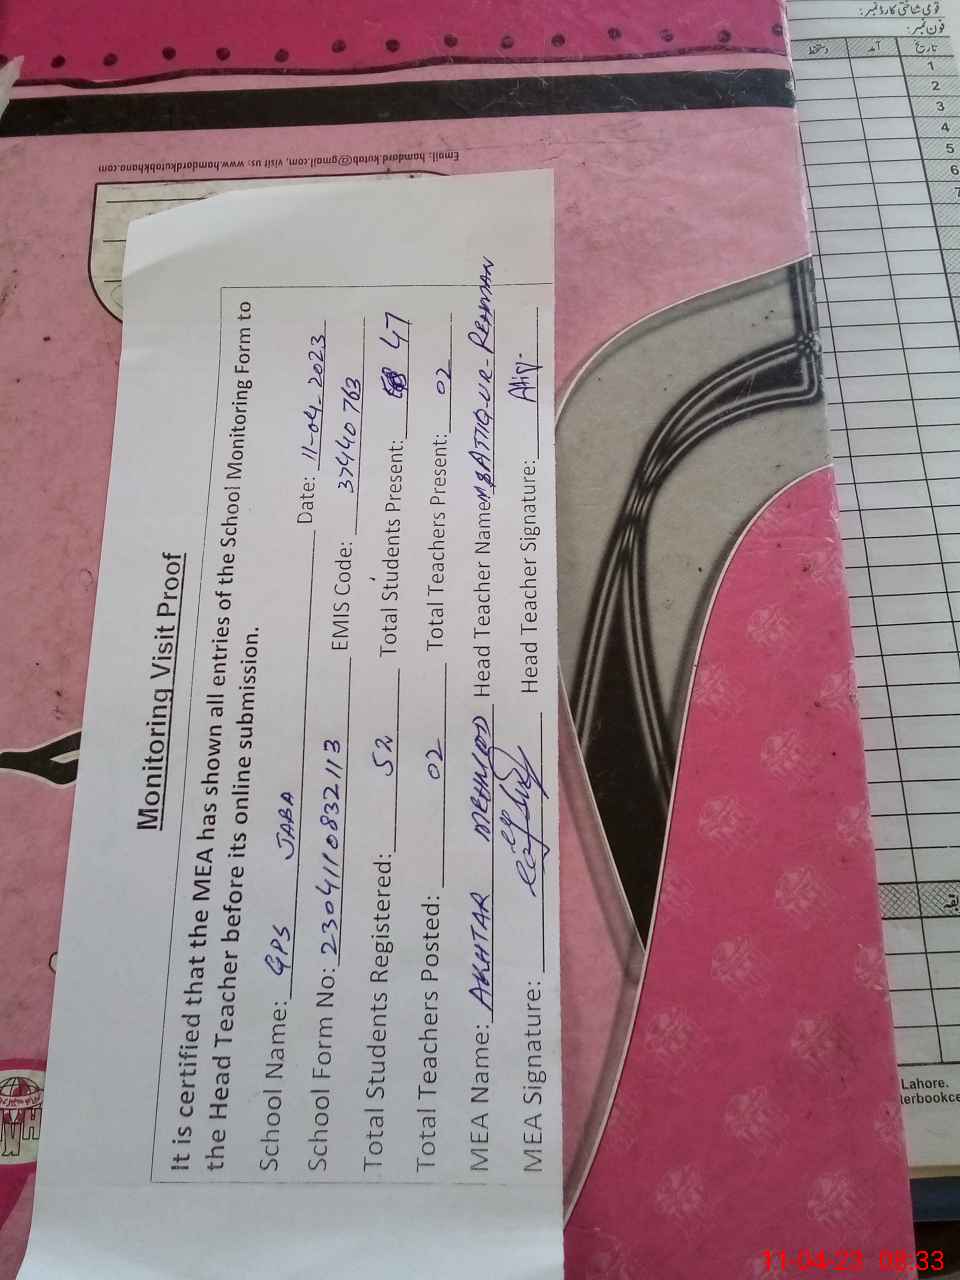 Monitoring Visit Proof
It is certified that the MEA has shown all entries of the School Monitoring Form to
the Head Teacher before its online submission.
School Name: GPS JABA Date: 11-04-2023
School Form No: 2304110832113 EMIS Code: 37440763
Total Students Registered: 52 Total Students Present: 47
Total Teachers Posted: 02 Total Teachers Present: 02
MEA Name: AKHTAR MEHMOOD Head Teacher Name: ATTIQUE-REHMAN
MEA Signature: Head Teacher Signature:
Email: hamdard.kutab@gmail.com, visit us: www.hamdardkutabkhana.com
قومی شناختی کارڈ نمبر:
فون نمبر:
تاریخ آمد دستخط
1
2
3
4
5
6
7
Lahore.
11-04-23 08:33